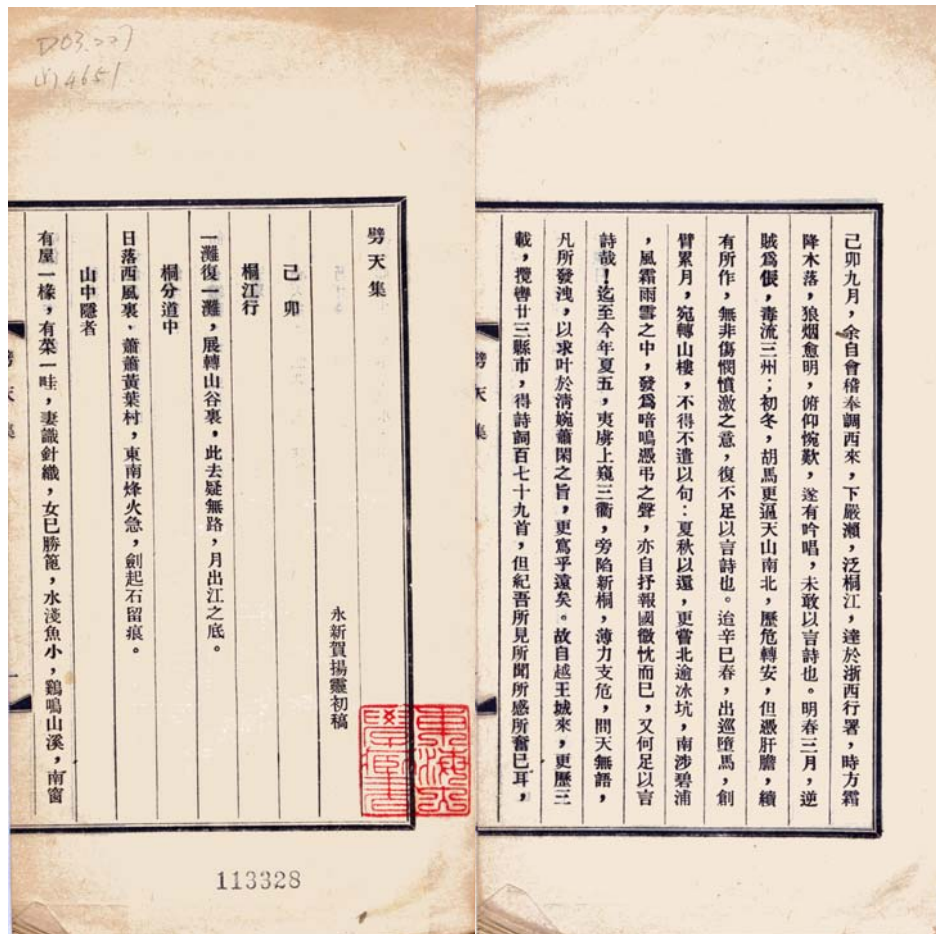 己卯九月，余自會稽奉調西來，下嚴瀨，泛桐江，達於浙西行署，時方霜
降木落，狼烟愈明，俯仰惋歎，遂有吟唱，未敢以言詩也。明春三月，逆
賊爲倀，毒流三州；初冬，胡馬更逼天山南北，歷危轉安，但憑肝膽，續
有所作，無非傷憫憤激之意，復不足以言詩也。迨辛巳春，出巡墮馬，創
臂累月，宛轉山樓，不得不遣以句：夏秋以還，更嘗北逾冰坑，南涉碧浦
，風霜雨雪之中，發爲喑鳴憑弔之聲，亦自抒報國微忱而已，又何足以言
詩哉！迄至今年夏五，夷虜上窺三衢，旁陷新桐，薄力支危，問天無語，
凡所發洩，以求叶於清婉蕭閑之旨，更寫乎遠矣。故自越王城來，更歷三
載，攬轡廿三縣市，得詩詞百七十九首，但紀吾所見所聞所感所奮已耳，
劈天集
劈天集
永新賀揚靈初稿
己卯
桐江行
一灘復一灘，展轉山谷裏，此去疑無路，月出江之底。
桐分道中
日落西風裏，蕭蕭黃葉村，東南烽火急，劍起石留痕。
山中隱者
有屋一椽，有菜一畦，妻識針織，女已勝篦，水淺魚小，鷄鳴山溪，南窗
劈天集
一
113328